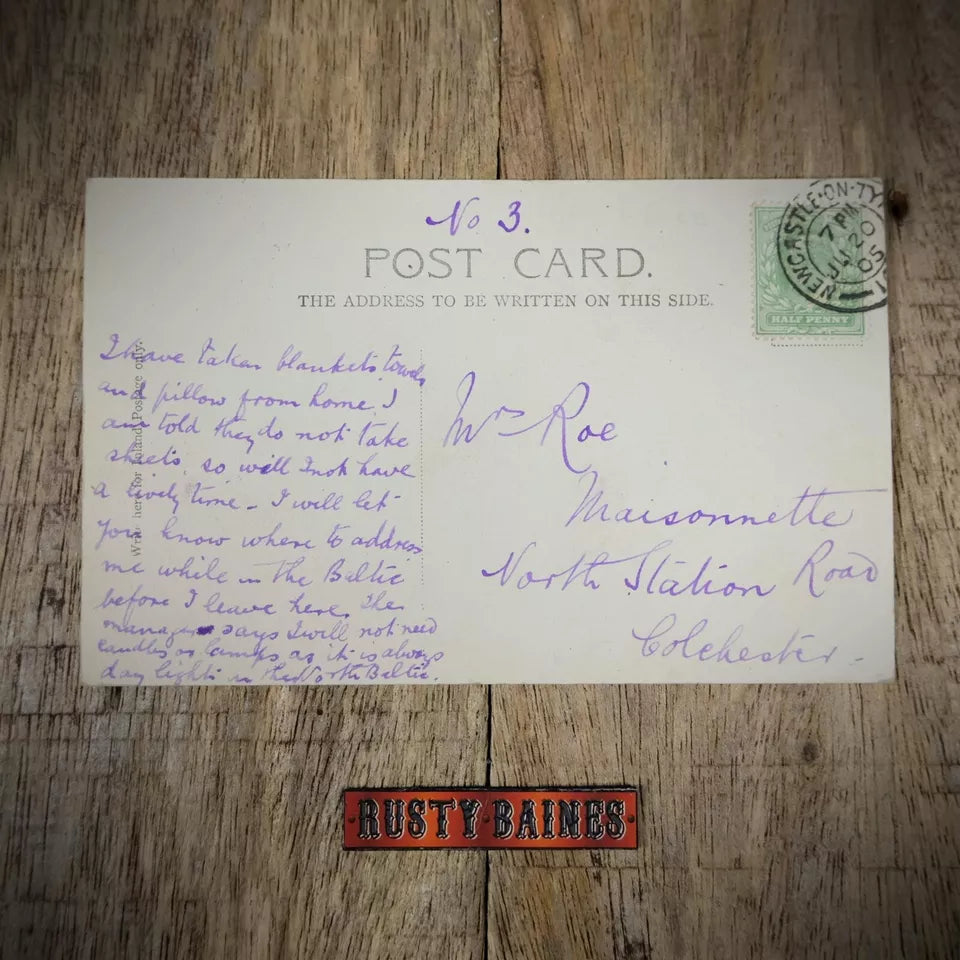 No 3.
POST CARD.
THE ADDRESS TO BE WRITTEN ON THIS SIDE.
NEWCASTLE-ON-TY
7 PM
JU 20
05
HALF PENNY
Write here for Inland Postage only.
I have taken blankets, towels
and pillow from home. I
am told they do not take
sheets, so will I not have
a lively time - I will let
you know where to address
me while in the Baltic
before I leave here. The
manager says I will not need
candles or lamps as it is always
day light in the North Baltic.
Mrs Roe
Maisonnette
North Station Road
Colchester -
RUSTY BAINES